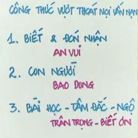 CÔNG THỨC VƯỢT THOÁT MỌI VẤN NẠN
1. BIẾT & ĐÓN NHẬN
AN VUI
2. CON NGƯỜI
BAO DUNG
3. BÀI HỌC - TÂM ĐẮC - NGỘ
TRÂN TRỌNG - BIẾT ƠN